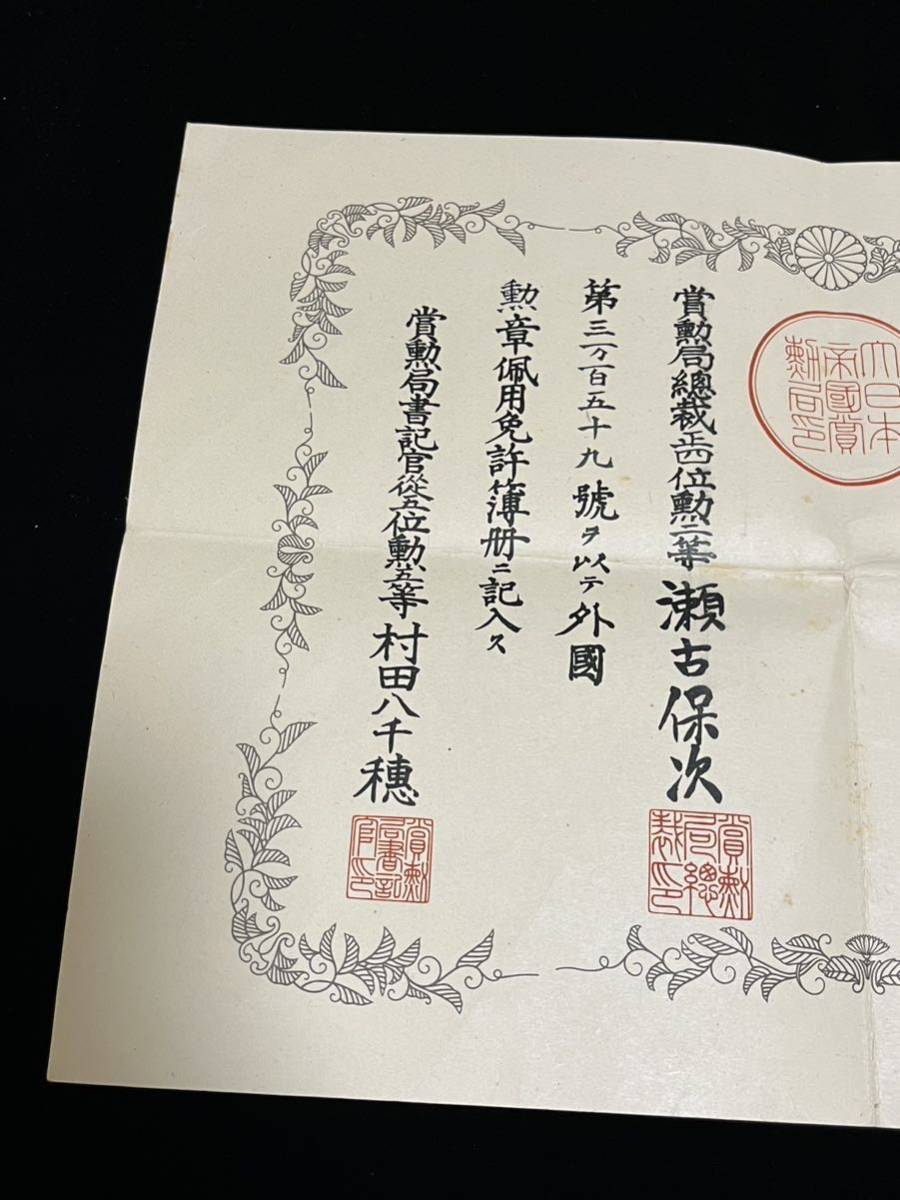 大日本
帝國賞
勲局印
賞勲局總裁正四位勲二等瀬古保次
賞勲
局總
裁印
第三万百五十九號ヲ以テ外國
勲章佩用免許簿册ニ記入ス
賞勲局書記官從五位勲五等村田八千穗
賞勲
局書記
官印